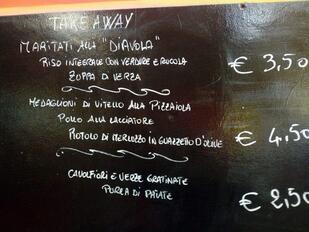 TAKE AWAY
MARITATI ALLA "DIAVOLA"
RISO INTEGRALE CON VERDURE E RUCOLA
€ 3,50
ZUPPA DI VERZA
MEDAGLIONI DI VITELLO ALLA PIZZAIOLA
POLLO ALLA CACCIATORE
€ 4,50
ROTOLO DI MERLUZZO IN GUAZZETTO D'OLIVE
CAVOLFIORI E VERZE GRATINATE
€ 2,50
PUREA DI PATATE